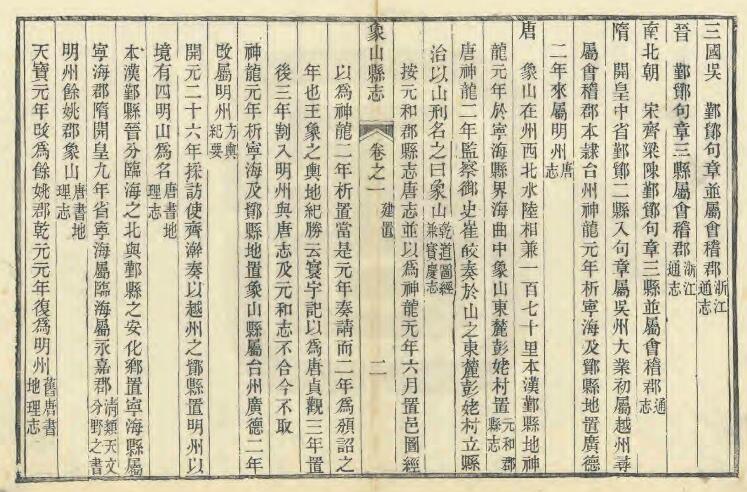 三國吳　鄞鄮句章並屬會稽郡浙江通志
晉　鄞鄮句章三縣屬會稽郡浙江通志
南北朝　宋齊梁陳鄞鄮句章三縣並屬會稽郡通志
隋　開皇中省鄞鄮二縣入句章屬吳州大業初屬越州尋
屬會稽郡本隷台州神龍元年析寧海及鄮縣地置廣德
二年來屬明州唐志
唐　象山在州西北水陸相兼一百七十里本漢鄞縣地神
龍元年於寧海縣界海曲中象山東麓彭姥村置元和郡縣志
唐神龍二年監察御史崔皎奏於山之東麓彭姥村立縣
治以山刑名之曰象山乾道圖經兼寶慶志
按元和郡縣志唐志並以爲神龍元年六月置邑圖經
象山縣志　卷之一　建置　二
以爲神龍二年析置當是元年奏請而二年爲頒詔之
年也王象之輿地紀勝云寰宇記以爲唐貞觀三年置
後三年割入明州與唐志及元和志不合今不取
神龍元年析寧海及鄮縣地置象山縣屬台州廣德二年
改屬明州方輿紀要
開元二十六年採訪使齊澣奏以越州之鄮縣置明州以
境有四明山爲名唐書地理志
本漢鄞縣晉分臨海之北與鄞縣之安化鄉置寧海縣屬
寧海郡隋開皇九年省寧海屬臨海屬永嘉郡清類天文分野之書
明州餘姚郡象山唐書地理志
天寶元年改爲餘姚郡乾元元年復爲明州舊唐書地理志